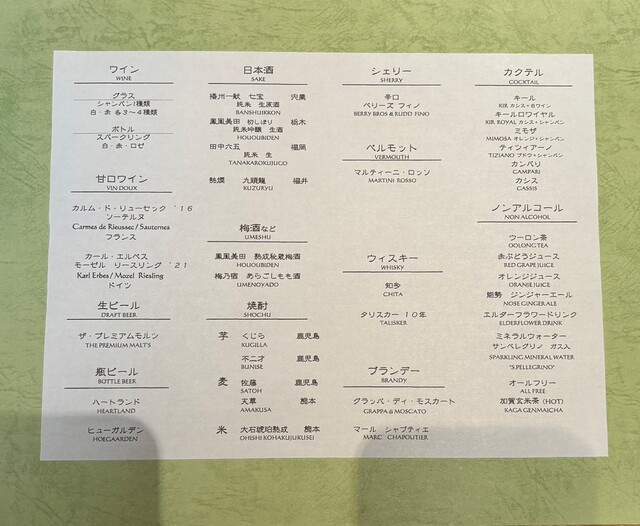 ワイン
WINE
グラス
シャンパン1種類
白・赤 各3〜4種類
ボトル
スパークリング
白・赤・ロゼ
甘口ワイン
VIN DOUX
カルム・ド・リューセック '16
ソーテルヌ
Carmes de Rieussec / Sauternes
フランス
カール・エルベス
モーゼル リースリング '21
Karl Erbes / Mozel Riesling
ドイツ
生ビール
DRAFT BEER
ザ・プレミアムモルツ
THE PREMIUM MALT'S
瓶ビール
BOTTLE BEER
ハートランド
HEARTLAND
ヒューガルデン
HOEGAARDEN
日本酒
SAKE
播州一献 七宝 宍粟
純米 生原酒
BANSHUIKKON
鳳凰美田 初しぼり 栃木
純米吟醸 生酒
HOUOUBIDEN
田中六五 福岡
純米 生
TANAKAROKUJUGO
熱燗 九頭龍 福井
KUZURYU
梅酒など
UMESHU
鳳凰美田 熟成秘蔵梅酒
HOUOUBIDEN
梅乃宿 あらごしもも酒
UMENOYADO
焼酎
SHOCHU
芋 くじら 鹿児島
KUGILLA
不二才 鹿児島
BUNISE
麦 佐藤 鹿児島
SATOH
天草 熊本
AMAKUSA
米 大石琥珀熟成 熊本
OHISHI KOHAKUJUKUSEI
シェリー
SHERRY
辛口
ベリーズ フィノ
BERRY BROS & RUDD FINO
ベルモット
VERMOUTH
マルティーニ・ロッソ
MARTINI ROSSO
ウィスキー
WHISKY
知多
CHITA
タリスカー 10年
TALISKER
ブランデー
BRANDY
グラッパ・ディ・モスカート
GRAPPA di MOSCATO
マール シャプティエ
MARC CHAPOUTIER
カクテル
COCKTAIL
キール
KIR カシス+白ワイン
キールロワイヤル
KIR ROYAL カシス+シャンパン
ミモザ
MIMOSA オレンジ+シャンパン
ティツィアーノ
TIZIANO ブドウ+シャンパン
カンパリ
CAMPARI
カシス
CASSIS
ノンアルコール
NON ALCOHOL
ウーロン茶
OOLONG TEA
赤ぶどうジュース
RED GRAPE JUICE
オレンジジュース
ORANJE JUICE
能勢 ジンジャーエール
NOSE GINGER ALE
エルダーフラワードリンク
ELDERFLOWER DRINK
ミネラルウォーター
サンペレグリノ ガス入
SPARKLING MINERAL WATER
"S.PELLEGRINO"
オールフリー
ALL FREE
加賀玄米茶 (HOT)
KAGA GENMAICHA